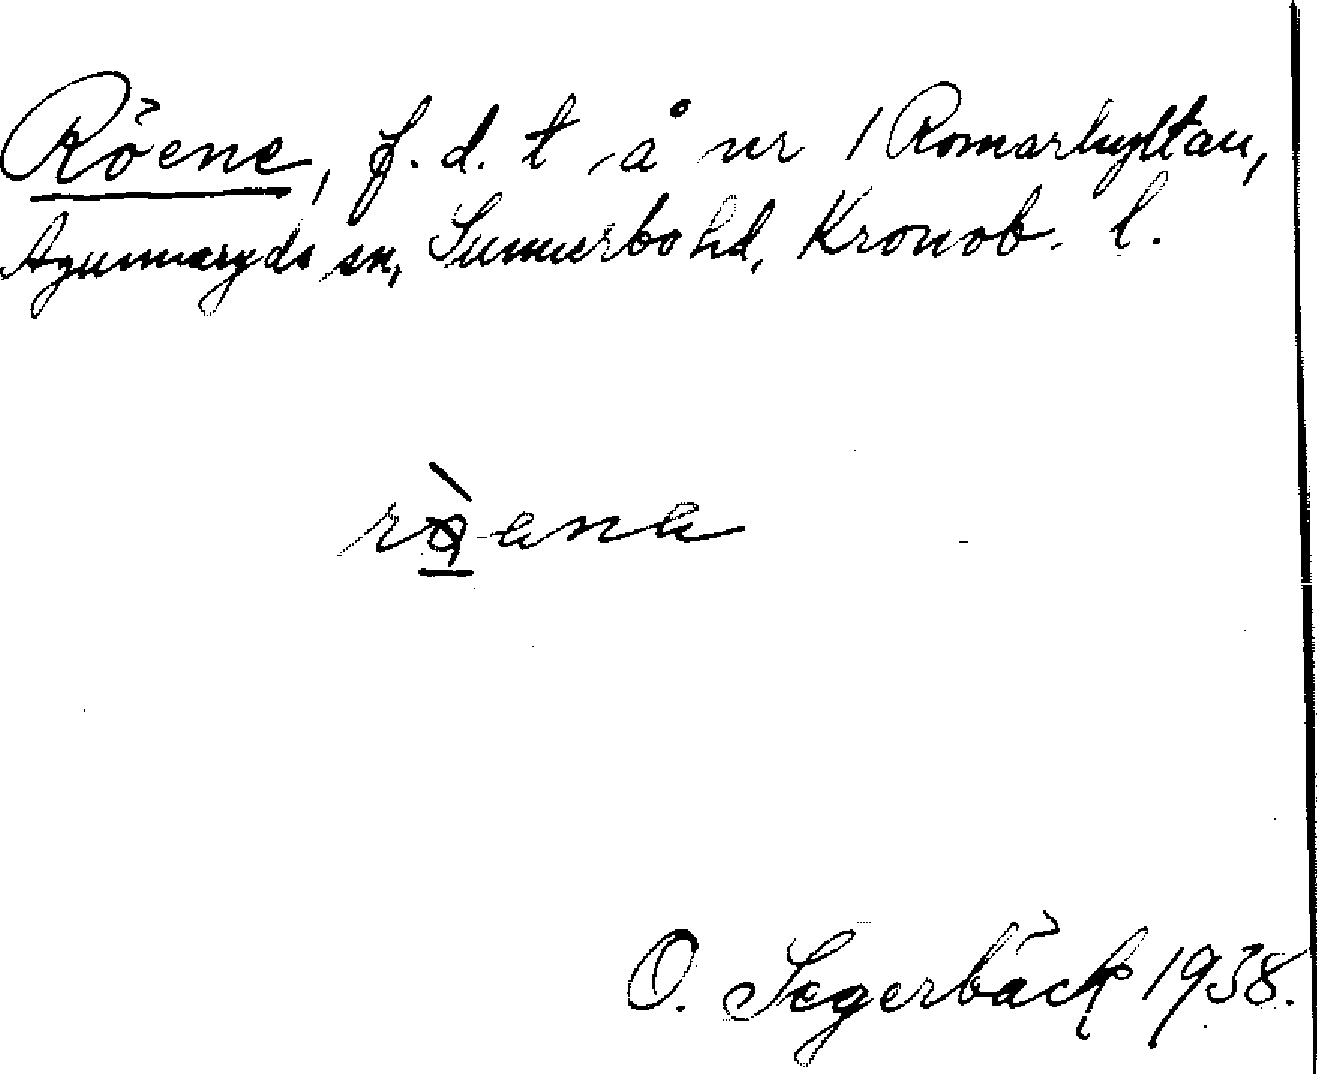 Röene, f.d. t å nr 1 Romarhyltan,
Agunnaryds sn, Sunnerbo hd, Kronob. l.
rö̀ene
O. Segerbäck 1938.